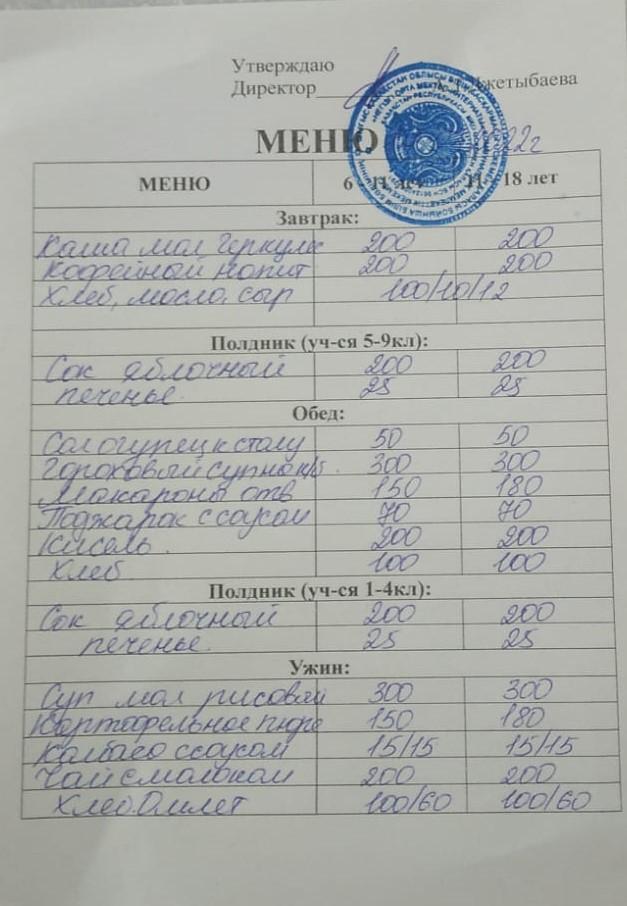 Утверждаю
Директор кетыбаева
МЕНЮ 22г
МЕНЮ 6 11 лет 11 18 лет
Завтрак:
Каша мол Геркулес 200 200
Кофейной напит 200 200
Хлеб, масло, сыр 100/10/12
Полдник (уч-ся 5-9кл):
Сок яблочный 200 200
печенье. 25 25
Обед:
Сол огурец к столу 50 50
Гороховый суп на к/б. 300 300
Макароны отв 150 180
Поджарок с соусом 70 70
Кисель. 200 200
Хлеб 100 100
Полдник (уч-ся 1-4кл):
Сок яблочный 200 200
печенье. 25 25
Ужин:
Суп мол рисовый 300 300
Картофельное пюре 150 180
Колбаса с соусом 15/15 15/15
Чай с молоком 200 200
Хлеб. Омлет 100/60 100/60